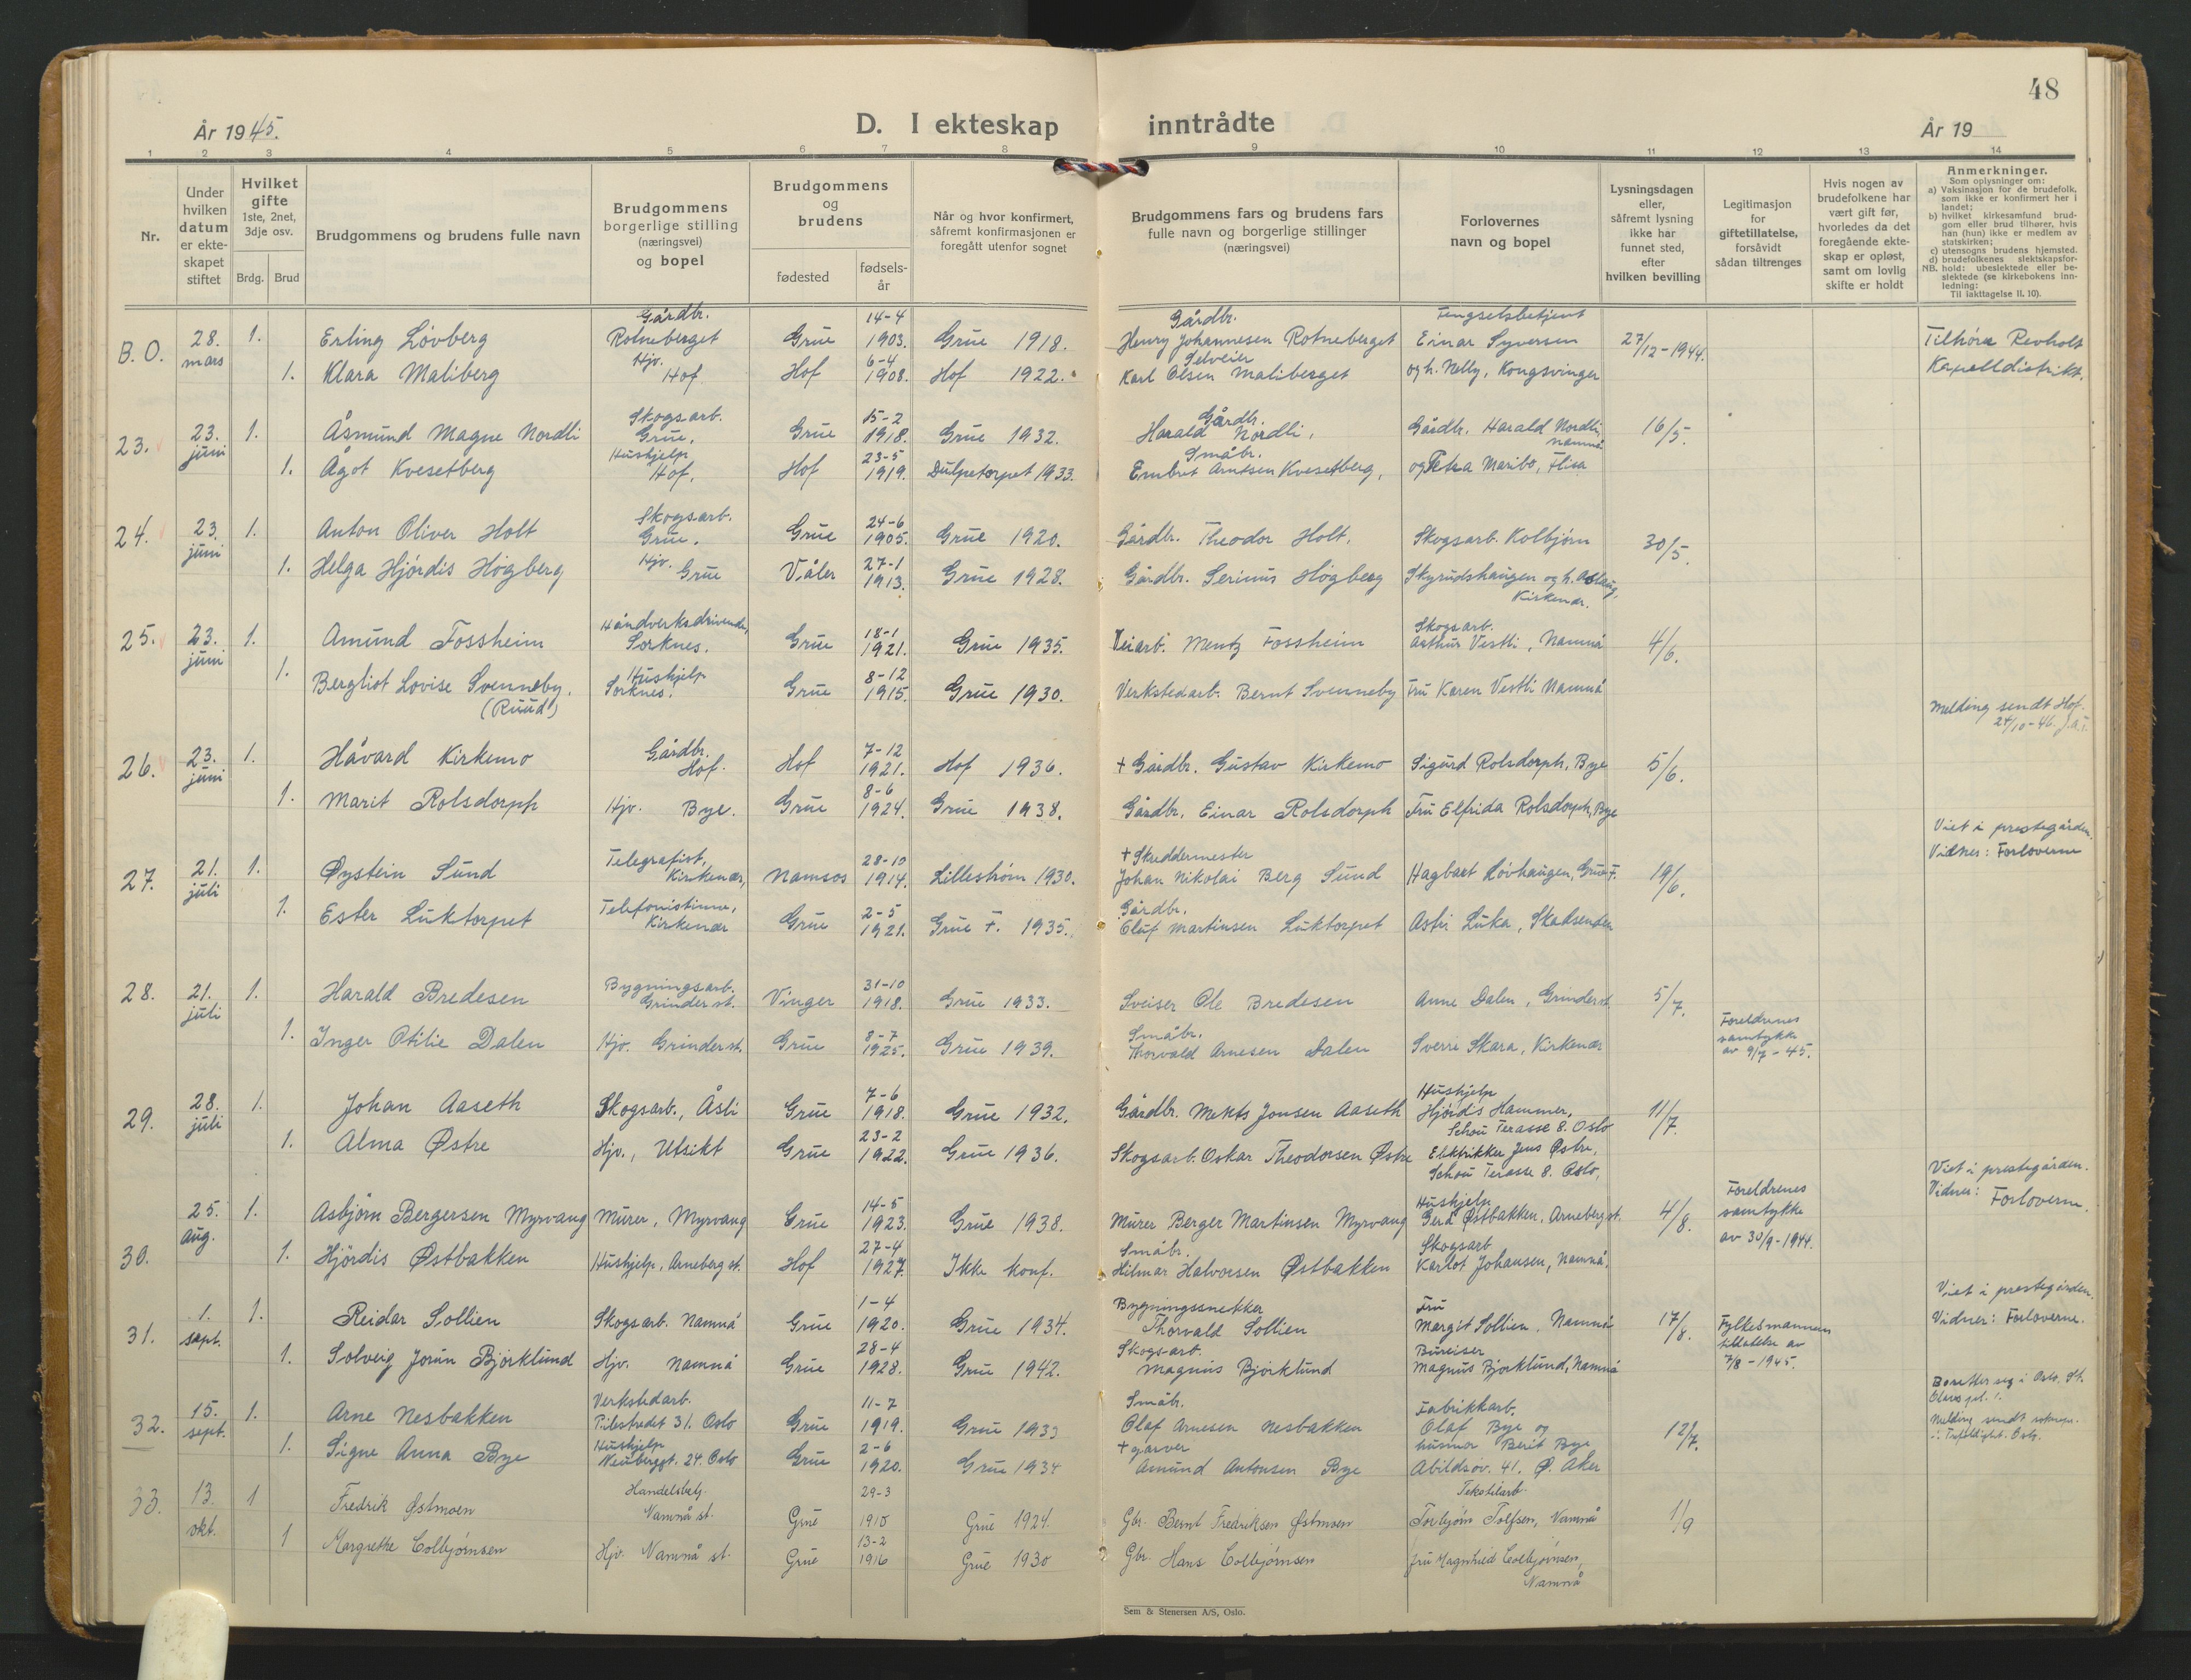 48
År 1945.
D. I ekteskap inntrådte
År 19
1 2 3 4 5 6 7 8 9 10 11 12 13 14
Nr.
Under hvilken datum er ekteskapet stiftet
Hvilket gifte 1ste, 2net, 3dje osv.
Brdg. Brud
Brudgommens og brudens fulle navn
Brudgommens borgerlige stilling (næringsvei) og bopel
Brudgommens og brudens
fødested
fødsels-år
Når og hvor konfirmert, såfremt konfirmasjonen er foregått utenfor sognet
Brudgommens fars og brudens fars fulle navn og borgerlige stillinger (næringsvei)
Forlovernes navn og bopel
Lysningsdagen eller, såfremt lysning ikke har funnet sted, efter hvilken bevilling
Legitimasjon for giftetillatelse, forsåvidt sådan tiltrenges
Hvis nogen av brudefolkene har vært gift før, hvorledes da det foregående ekteskap er opløst, samt om lovlig skifte er holdt
Anmerkninger.
Som oplysninger om:
a) Vaksinasjon for de brudefolk, som ikke er konfirmert her i landet;
b) hvilket kirkesamfund brudgom eller brud tilhører, hvis han (hun) ikke er medlem av statskirken;
c) utensogns brudens hjemsted.
d) brudefolkenes slektskapsforhold: ubeslektede eller beslektede (se kirkebokens innledning:
NB. Til iakttagelse II. 10).
B.O. 28. mars 1. Erling Løvberg Gårdbr. Rotneberget Grue 14-4 1903. Grue 1918. Gårdbr. Henry Johannesen Rotneberget Fengselsbetjent Einar Syversen 27/12-1944. Tilhøre Revholt
1. Klara Maliberg Hjv. Hof. Hof 6-4 1908. Hof 1922. Selveier Karl Olsen Maliberget og h. Nelly, Kongsvinger Kapelldistrikt.
23. 23. juni 1. Åsmund Magne Nordli Skogsarb. Grue. Grue 15-2 1918. Grue 1932. Gårdbr. Harald Nordli, Gårdbr. Harald Nordli, Namnå 16/5.
1. Ågot Kvesetberg Hushjelp Hof. Hof 23-5 1919. Dulpetorpet 1933. Småbr. Embret Arntsen Kvesetberg, og Petra Maribo, Flisa
24. 23. juni 1. Anton Oliver Holt Skogsarb. Grue. Grue 24-6 1905. Grue 1920. Gårdbr. Theodor Holt. Skogsarb. Kolbjørn 30/5.
1. Helga Hjördis Högberg Hjv. Grue Våler 27-1 1913. Grue 1928. Gårdbr. Serinus Högberg Skyrudshaugen og h. Aslaug, Kirkenær.
25. 23. juni 1. Amund Fossheim Håndverksdrivende, Sorknes. Grue 18-1 1921. Grue 1935. Veiarb. Mentz Fossheim Skogsarb. Arthur Vestli, Namnå 4/6.
1. Bergliot Lovise Svenneby. (Ruud) Hushjelp Sorknes. Grue 8-12 1915. Grue 1930. Verkstedarb. Bernt Svenneby Fru Karen Vestli Namnå
Melding sendt Hof. 24/10-46.
26. 23. juni 1. Håvard Kirkemo Gårdbr. Hof. Hof 7-12 1921. Hof 1936. + Gårdbr. Gustav Kirkemo Sigurd Rolsdorph, Bye 5/6.
1. Marit Rolsdorph Hjv. Bye. Grue 8-6 1924. Grue 1938. Gårdbr. Einar Rolsdorph Fru Elfrida Rolsdorph, Bye
Viet i prestegården. Vidnes: Forloverne
27. 21. juli 1. Øystein Sund Telegrafist, Kirkenær, Namsos 28-10 1914. Lillestrøm 1930. + Skreddermester Johan Nikolai Berg Sund Hagbart Løvhaugen, Grue F. 19/6.
1. Ester Luktorpet Telefonistinne, Kirkenær Grue 2-5 1921. Grue F. 1935. Gårdbr. Eluf Martinsen Luktorpet Astri Luka, Skadsenden
28. 21. juli 1. Harald Bredesen Bygningsarb. Grinder st. Vinger 31-10 1918. Grue 1933. Sveiser Ole Bredesen Anne Dalen, Grinder st. 5/7.
1. Inger Otilie Dalen Hjv. Grinder st. Grue 8-7 1925. Grue 1939. Småbr. Thorvald Arnesen Dalen Sverre Skara, Kirkenær Foreldrenes samtykke av 9/7-45.
29. 28. juli 1. Johan Aaseth Skogsarb., Åsli Grue 7-6 1918. Grue 1932. Gårdbr. Jonsen Aaseth Hushjelp Hjördis Hammer, Schou Terasse 8. Oslo 11/7.
1. Alma Østre Hjv., Utsikt Grue 23-2 1922. Grue 1936. Skogsarb. Oskar Theodorsen Østre Elektriker Jens Østre, Schou Terasse 8. Oslo,
Viet i prestegården. Vidner: Forloverne.
30. 25. aug. 1. Asbjørn Bergersen Myrvang Murer, Myrvang Grue 14-5 1923. Grue 1938. Murer Berger Martinsen Myrvang Hushjelp Gerd Østbakken, Arneberg st. 4/8. Foreldrenes samtykke av 30/9-1944.
1. Hjördis Østbakken Hushjelp, Arneberg st. Hof 27-4 1927. Ikke konf. Småbr. Hilmar Halvorsen Østbakken Skogsarb Karlot Johansen, Namnå.
Viet i prestegården. Vidner: Forloverne.
31. 1. sept. 1. Reidar Sollien Skogsarb. Namnå Grue 1-4 1920. Grue 1934. Bygningssnekker Thorvald Sollien Fru Margit Sollien, Namnå 17/8. Fylkesmannens tillatelse av 7/8-1945.
1. Solveig Jorun Bjørklund Hjv. Namnå Grue 28-4 1928. Grue 1942. Skogsarb. Magnus Bjørklund Bureiser Magnus Bjørklund, Namnå
32. 15. sept. 1. Arne Nesbakken Verkstedarb. Pilestredet 31. Oslo Grue 11-7 1919. Grue 1933 Småbr. Olaf Arnesen Nesbakken Fabrikkarb. Olaf Bye og 12/7. Bosetter seg i Oslo. St. Olavs
1. Signe Anna Bye Hushjelp Neuberggt. 24. Oslo Grue 2-6 1920. Grue 1934 + garver Amund Antonsen Bye husmor Berit Bye Abildsøv. 41. Ø. Aker Melding sendt
33. 13. okt. 1 Fredrik Østmoen Handelsbetj. Namnå st. Grue 29-3 1910 Grue 1924. Gbr. Bernt Fredriksen Østmoen Tekstilarb. Torbjørn Tolfsen, Namnå 1/9
1 Margrethe Colbjørnsen Hjv. Namnå st. Grue 13-2 1916 Grue 1930 Gbr. Hans Colbjørnsen fru Magnhild Colbjørnsen, Namnå
Sem & Stenersen A/S, Oslo.